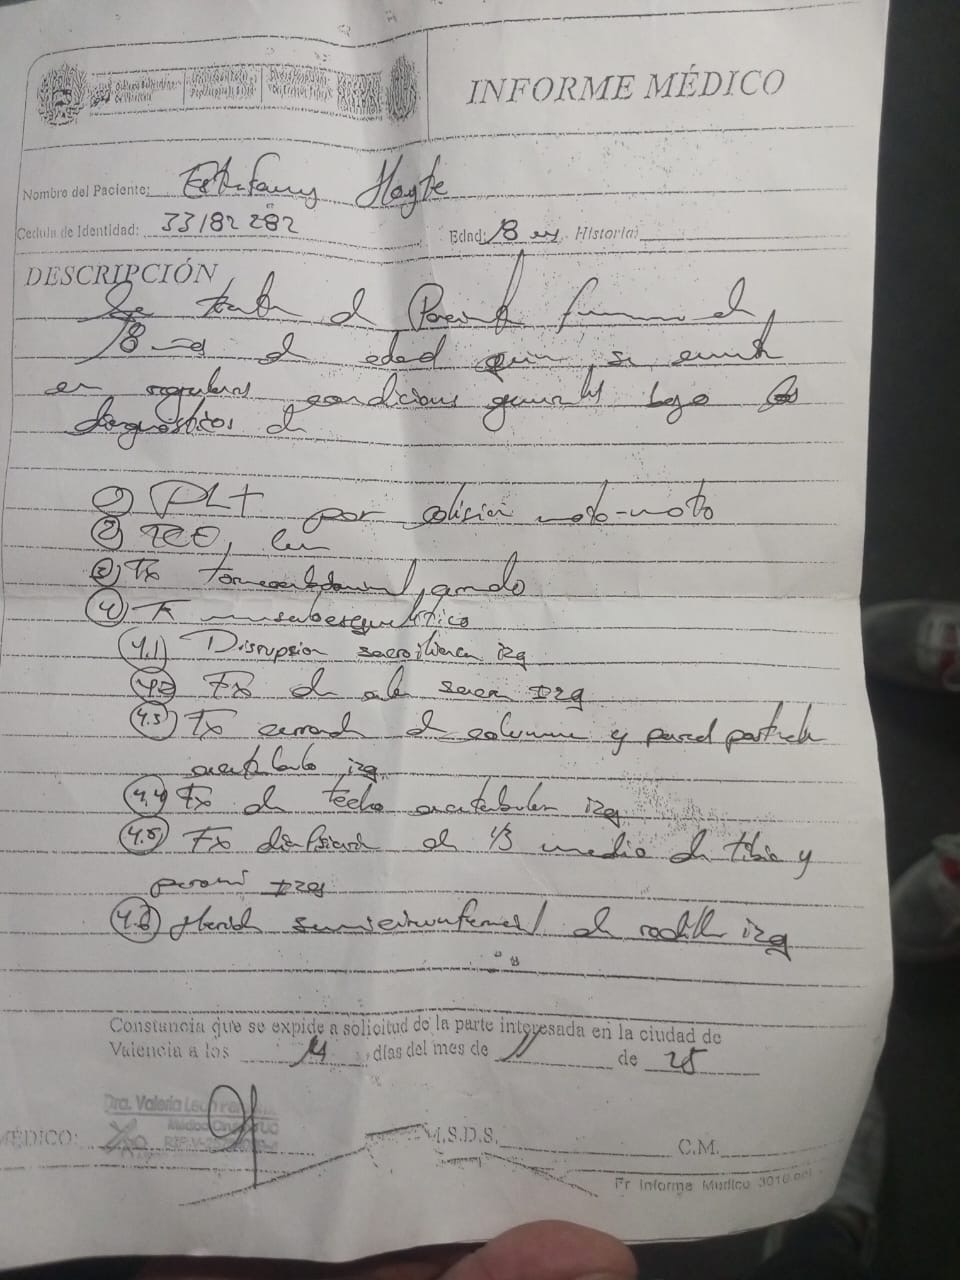 INFORME MÉDICO
Nombre del Paciente: Estefany Hoyte
Cedula de Identidad: 33182282 Edad: 18 Historia:
DESCRIPCIÓN
Se trata de Paciente femenina de
18 de edad quien se encuentra
en regulares condiciones generales bajo los
diagnósticos de
① PLT por colisión moto-moto
② TCE, leve
③ Tx toracoabdominal, cerrado
④ Tx musculoesquelético
4.1 Disrupsion sacroiliaca izq
4.2 Fx de ala sacra Izq
4.3 Fx cerrada de columna y pared posterior
acetabulo izq
4.4 Fx de techo acetabular izq
4.5 Fx diafisiaria de 1/3 medio de tibia y
peroné Izq
4.6 Herida semicircunferencial de rodilla izq
Constancia que se expide a solicitud de la parte interesada en la ciudad de
Valencia a los 14 días del mes de 11 de 25
Dra. Valeria
MÉDICO: M.S.D.S. C.M.
Fr Informe Medico